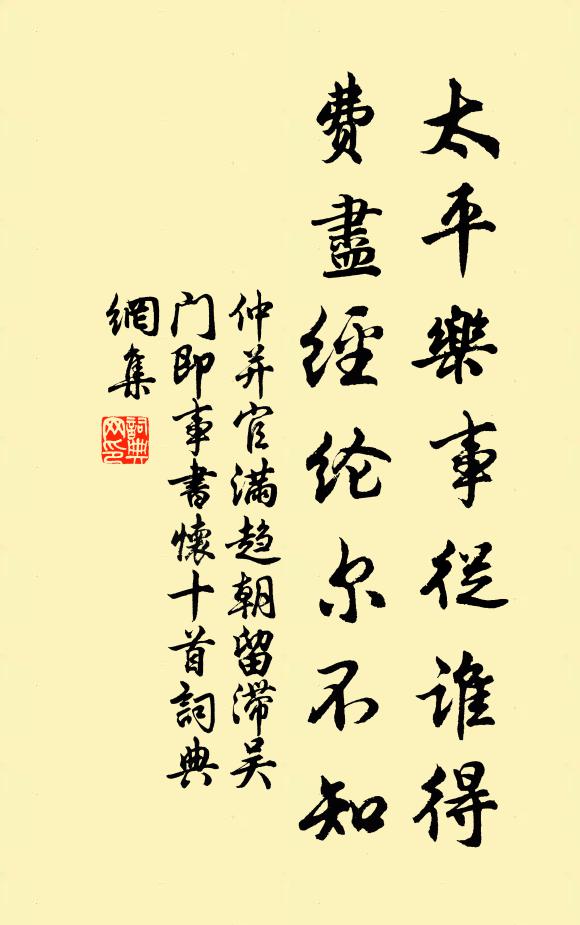 太平樂事從誰得
費盡經纶尔不知
仲并官滿趋朝留滞吴
门即事書懷十首詞典
網集
詞典
网印